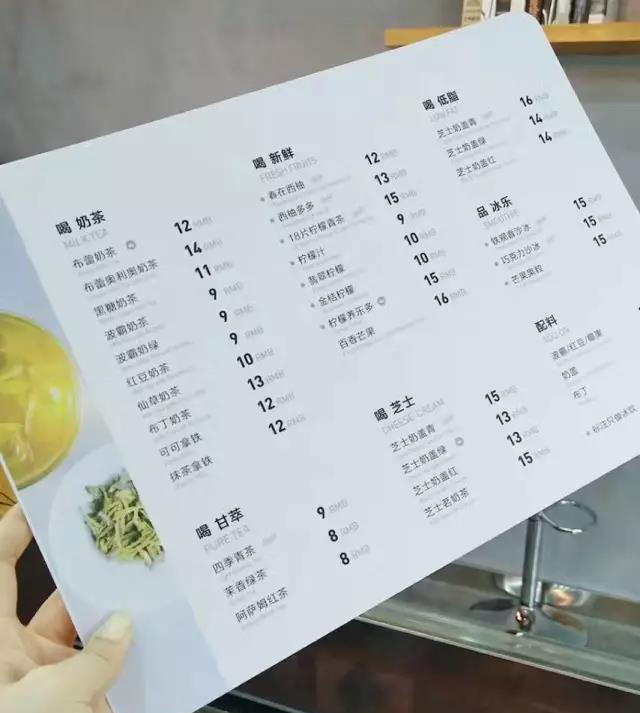 喝 奶茶
MILK TEA
布蕾奶茶 12 RMB
布蕾奥利奥奶茶 14 RMB
黑糖奶茶 11 RMB
波霸奶茶 9 RMB
波霸奶绿 9 RMB
红豆奶茶 9 RMB
仙草奶茶 10 RMB
布丁奶茶 13 RMB
可可拿铁 12 RMB
抹茶拿铁 12 RMB
喝 甘萃
PURE TEA
四季青茶 9 RMB
茉香绿茶 8 RMB
阿萨姆红茶 8 RMB
喝 新鲜
FRESH FRUITS
春在西柚 12 RMB
西柚多多 13 RMB
18片柠檬青茶 15 RMB
柠檬汁 9 RMB
翡翠柠檬 10 RMB
金桔柠檬 10 RMB
柠檬养乐多 15 RMB
百香芒果 16 RMB
喝 芝士
CHEESE CREAM
芝士奶盖青 15 RMB
芝士奶盖绿 13 RMB
芝士奶盖红 13 RMB
芝士若奶茶 15 RMB
喝 低脂
LOW FAT
芝士奶盖青 16 RMB
芝士奶盖绿 14 RMB
芝士奶盖红 14 RMB
品 冰乐
SMOOTHIE
铁观音沙冰 15 RMB
巧克力沙冰 15 RMB
芒果奥粒 15 RMB
配料
ADD ON
波霸/红豆/椰果
奶盖
布丁
标注只做冰饮